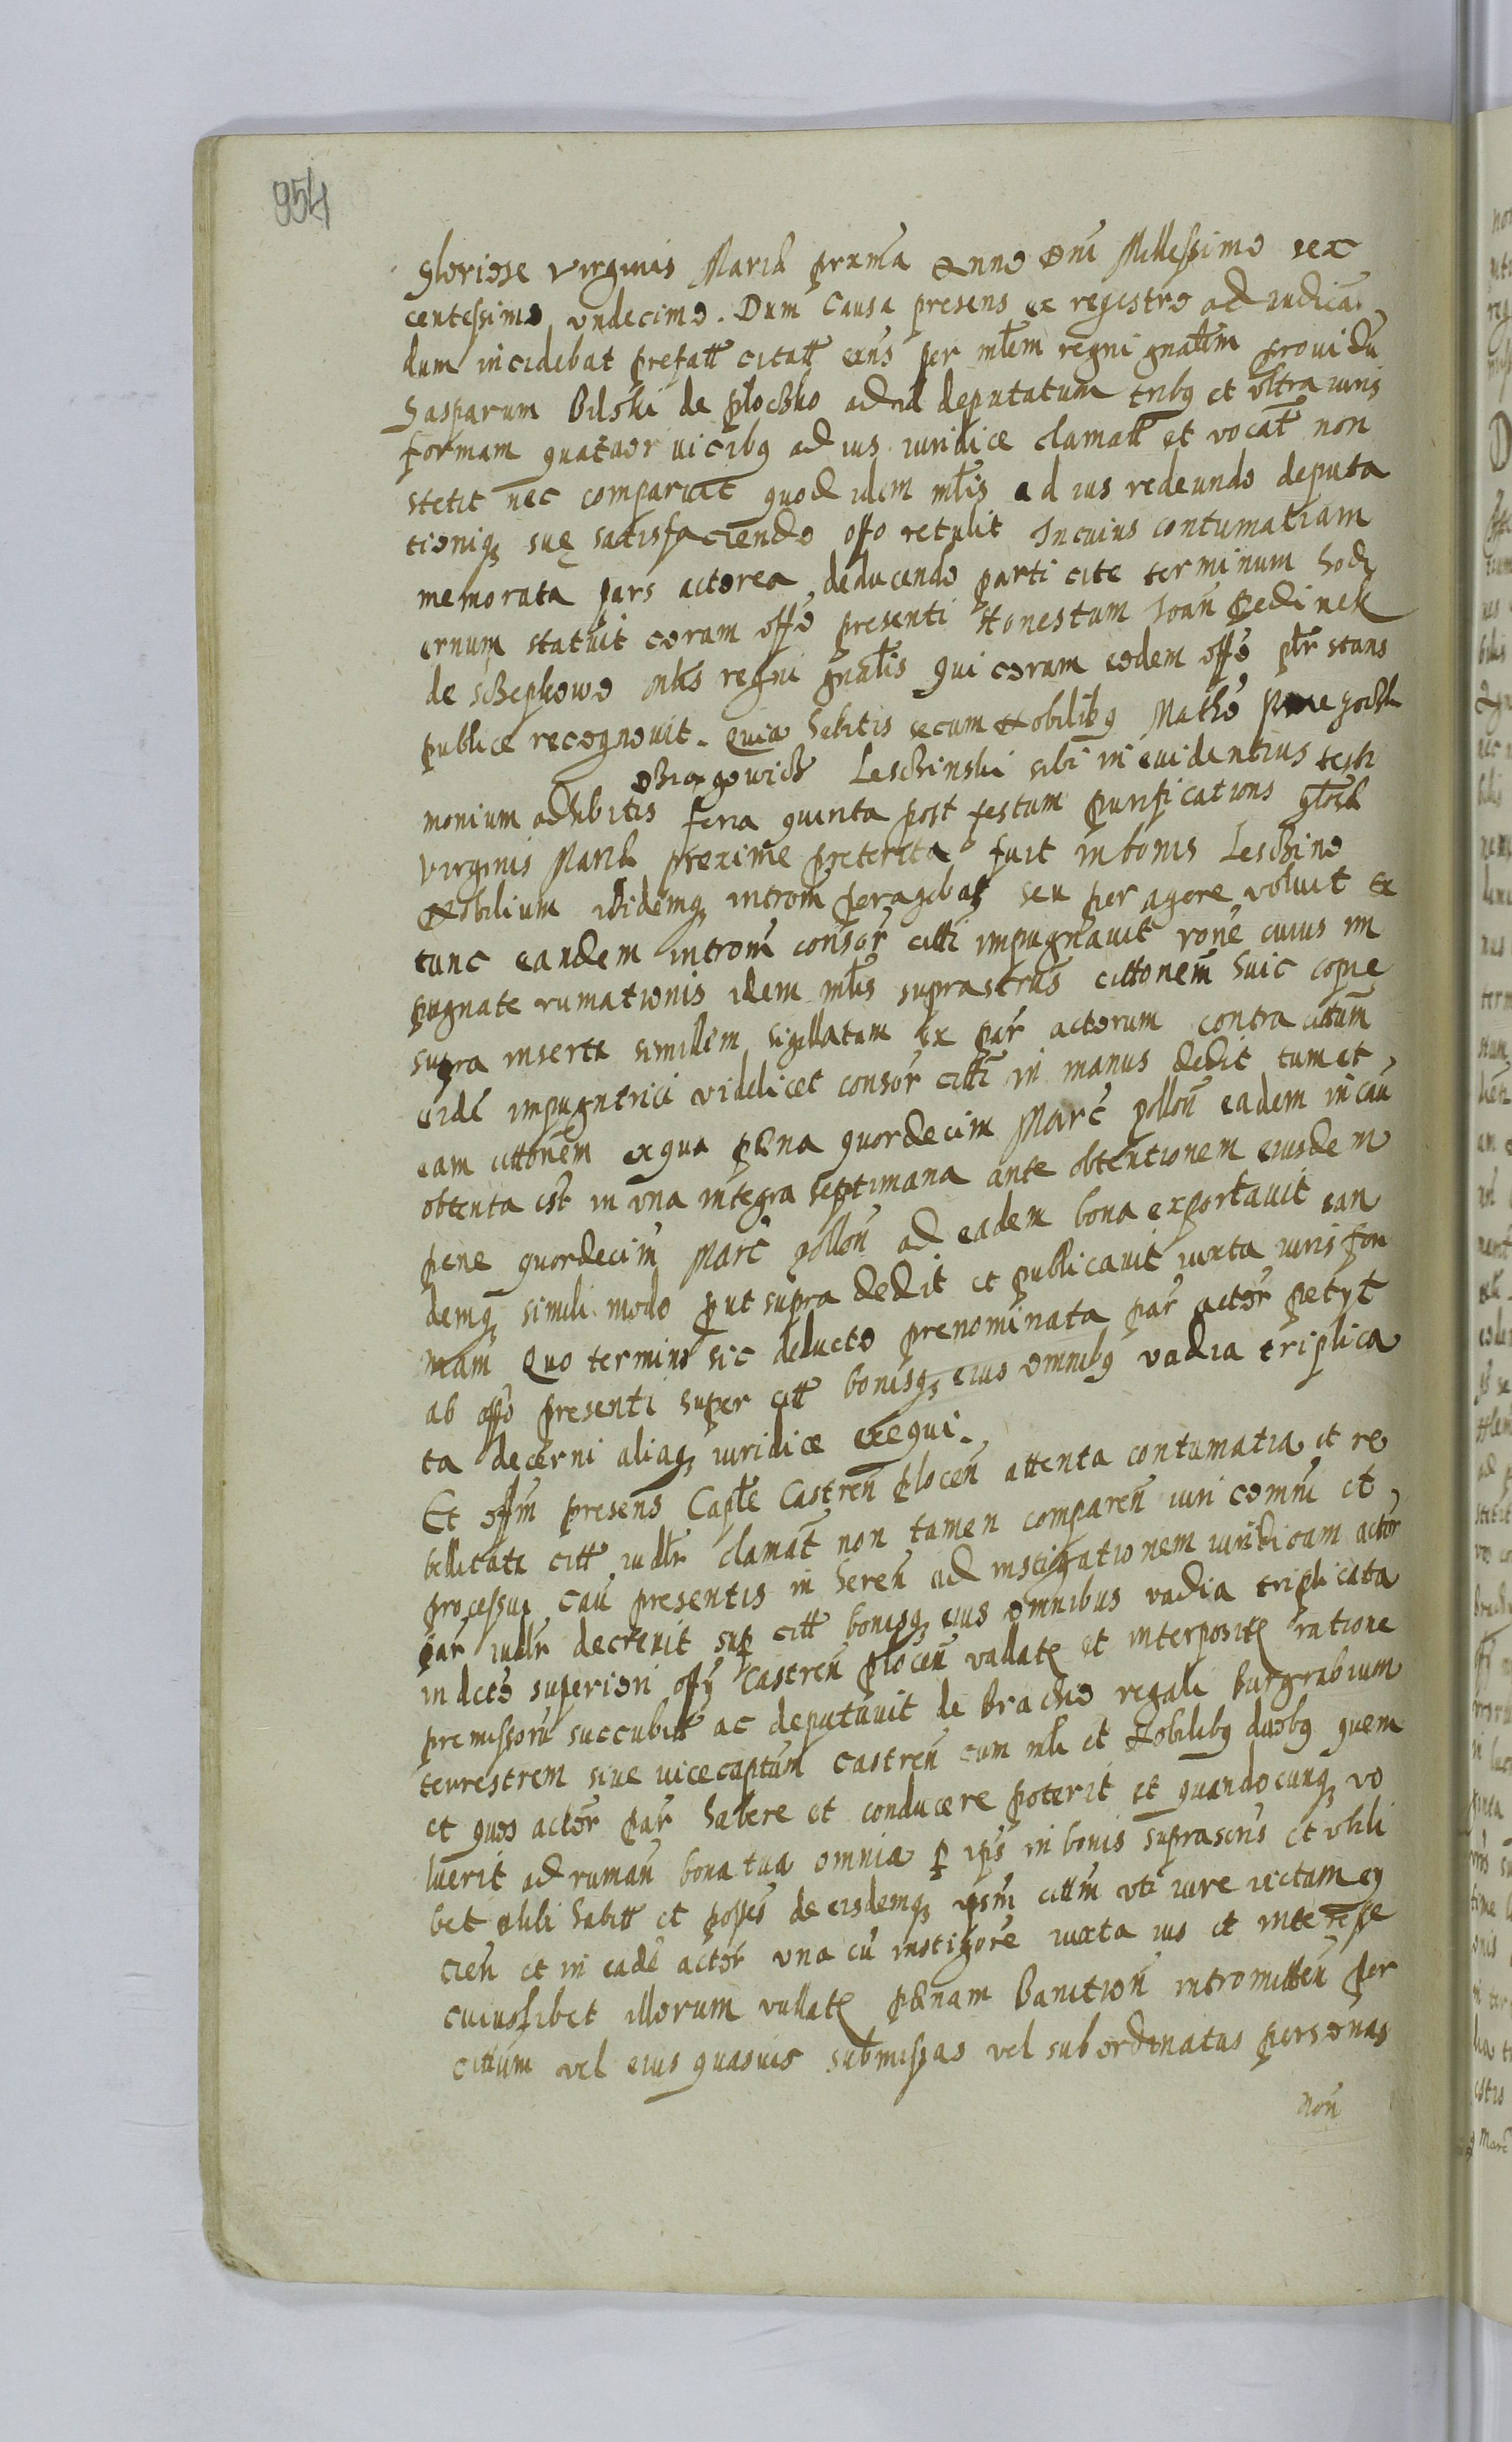 954
Gloriose virginis Mariæ proxima Anno Dni Millessimo sex
centessimo undecimo. Dum Causa presens ex regestro ad iudican
dum incidebat prefatt citatt eius per mltem regni gnalem prouidu
Gasparum Bilski de Płoczko ad id deputatum tribq et ultra iuris
formam quatuor uicibq ad ius iuridice clamatt et vocat non
stetit nec comparuit quod idem mltis ad ius redeundo deputa
tioniq suę satisfaciendo offo retulit In cuius contumatiam
memorata pars actorea deducendo parti cite terminum hodi
ernum statuit coram offo presenti Honestum Joan Jedinek
de Sczepkowo mltis regni gnalis qui coram eodem offo plr stans
publice recognouit. Quia habitis secum Nobilibq Matho
Leschinski sibi in euidentius testi
monium adhibitis feria quinta post festum purificationis Glosæ
Virginis Mariæ proxime preterita fuit in bonis Leschino
Nobilium ibidemq introm peragebat seu peragere voluit Ex
tunc eandem introm consor citti impugnauit rone cuius im
pugnate rumationis idem mltis suprascrus cittonem huic copie
supra inserte similem sigillatam ex par actorum contra cittum
eidē impugntrici videlicet consor citti in manus dedit tum et
eam cittonem ex qua pœna quordecim Marc pollon eadem in cau
obtenta est in una integra septimana ante obtentionem eiusdem
pene quordecim Marc pollon ad eadem bona exportauit ean
demq simili modo put supra dedit et publicauit iuxta iuris for
mam Quo termino sic deducto prenominata par actor petyt
ab offo presenti super citt bonisq eius omnibq vadia triplica
ta decerni aliaq iuridice exequi.
Et offm presens Caplē Castren Plocen attenta contumatia et re
bellitate citt iudlr clamat non tamen comparen iuri comuni et
processui cau presentis in heren ad instigationem iuridicam actor
par iudlr decreuit sup citt bonisq eius omnibus vadia triplicata
in dcto superiori offy Castren Plocen vallat et interposit ratione
premissoru succubitt ac deputauit de Brachio regali Burgrabium
terrestrem siue uicecaptum Castren cum mlti et Nobilibq duobq quem
et quos actor par habere et conducere poterit et quandocunq vo
luerit ad ruman bona tua omnia p ips in bonis suprascris et ubili
bet alibi habitt et posses de eisdemq ipsm cittm uti iure uictam ey
cien et in eadē actor una cu instigore iuxta ius et interesse
cuiuslibet illorum vallat pœnam Banition intromitten per
cittum vel eius quasuis submissas vel subordinatas personas
non